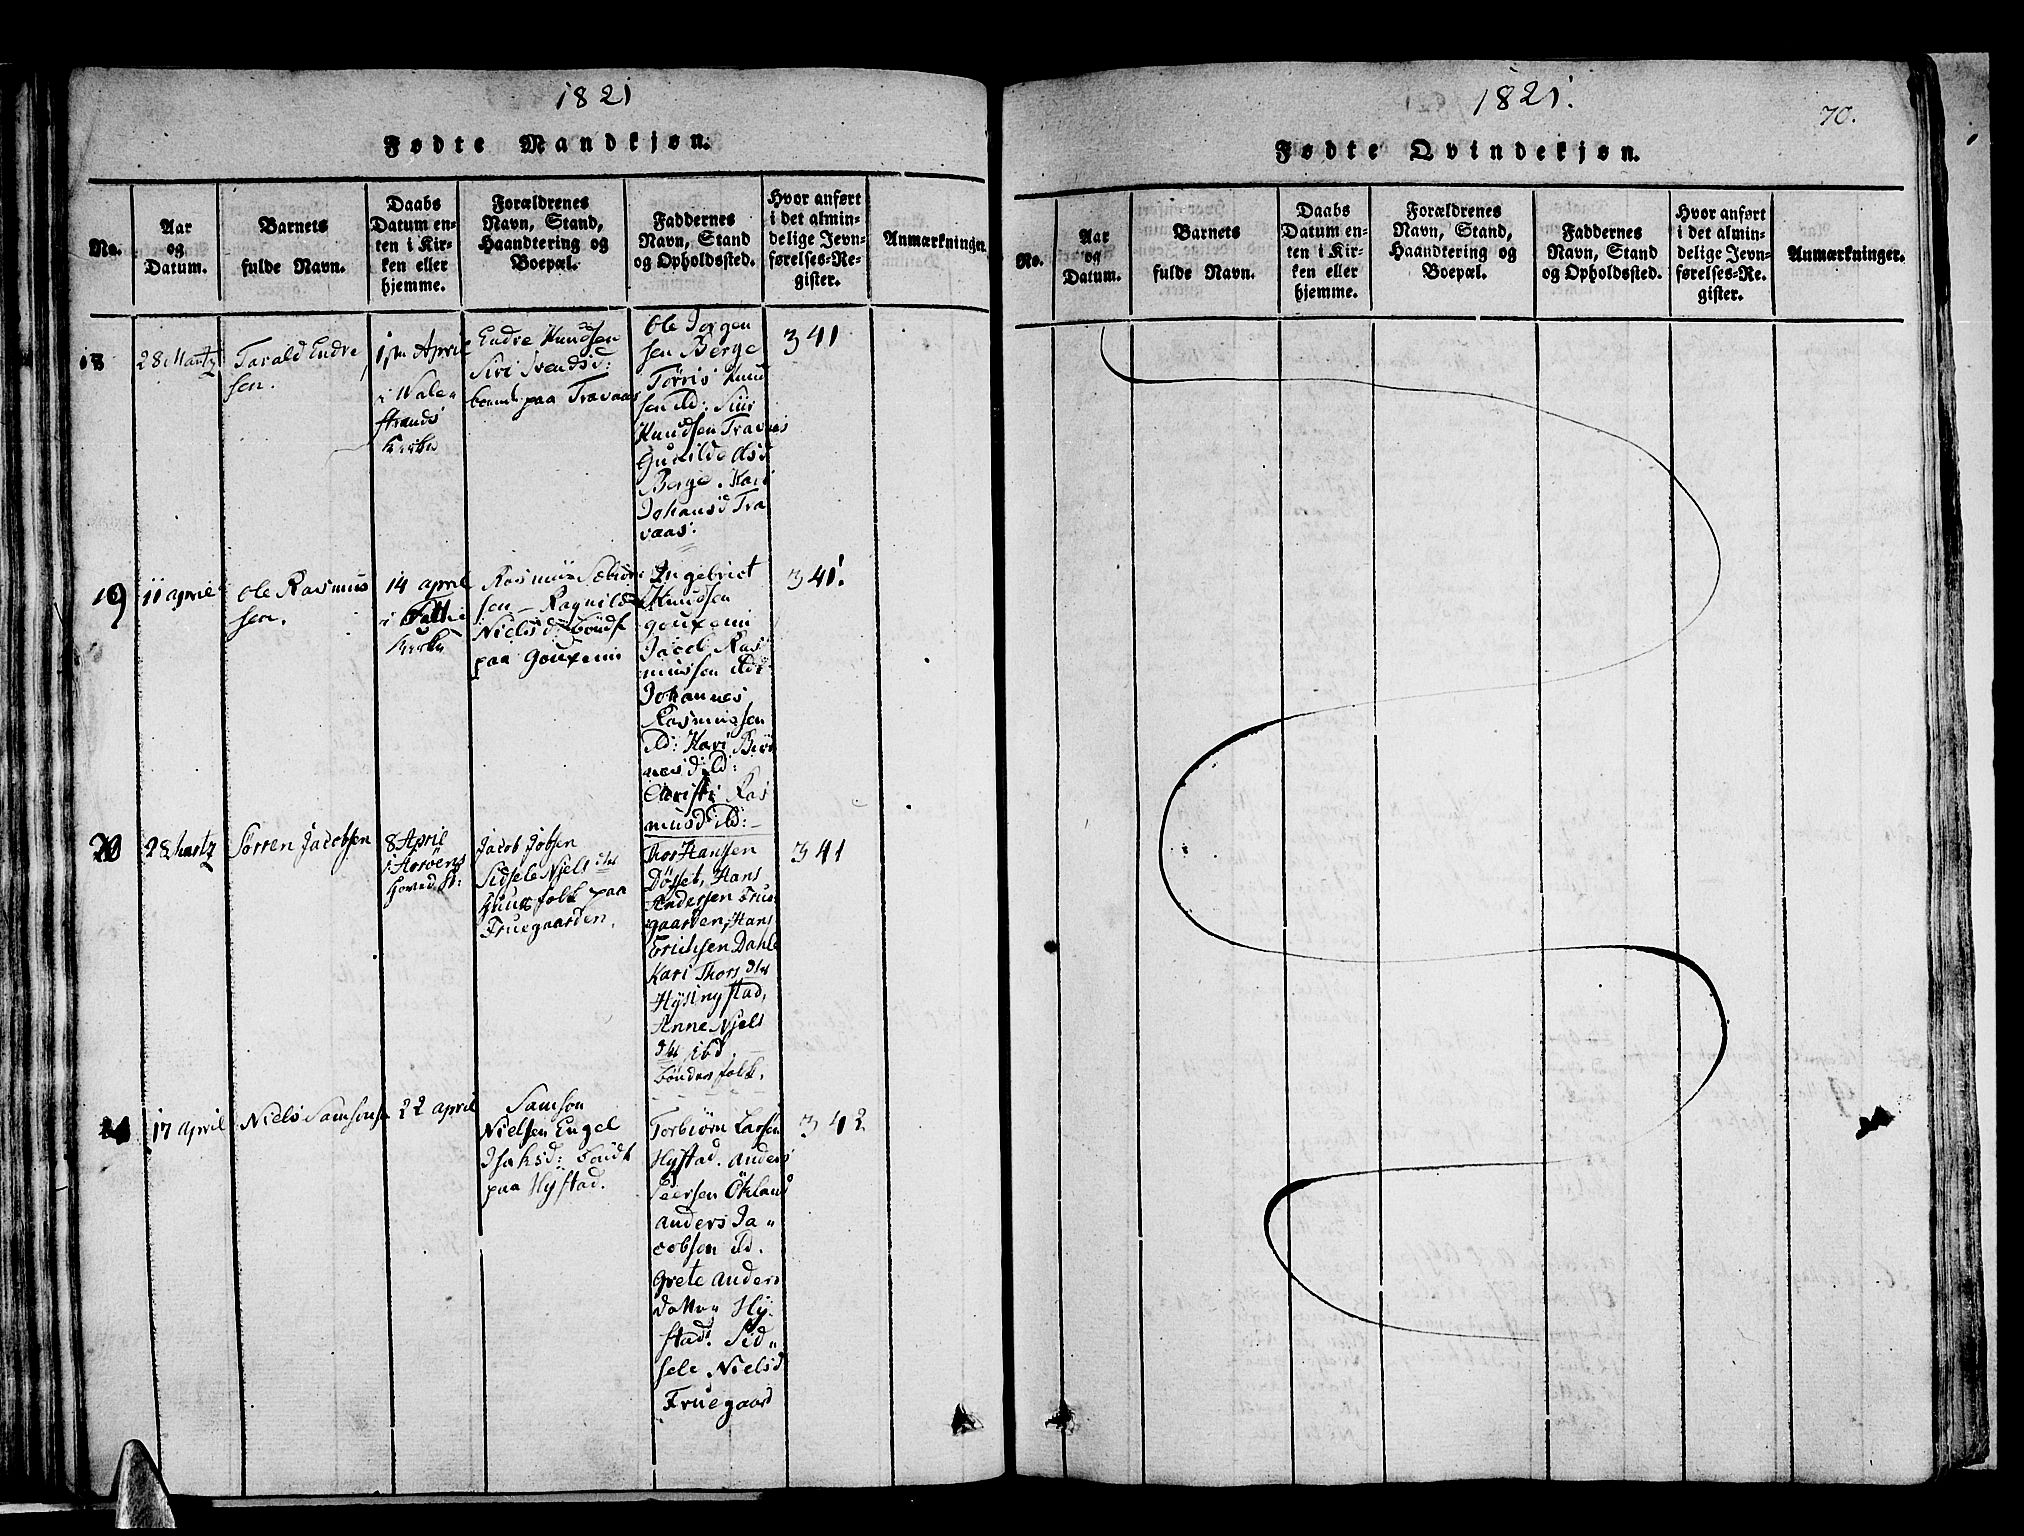 1821
Fødte Mandkjøn.
No.
Aar
og
Datum.
Barnets
fulde Navn.
Daabs
Datum en-
ten i Kir-
ken eller
hjemme.
Forældrenes
Navn, Stand,
Haandtering og
Boepæl.
Faddernes
Navn, Stand
og Opholdssted.
Hvor anført
i det almin-
delige Jevn-
førelses-Re-
gister.
Anmærkninger.
18
28 Martz
Tarald Endre
sen.
April
i Vale-
strands
Kirke
Endre Knudsen
Siri Svendsd:
paa Travaas
Ole Jorgen
sen Berge
Tørris Knud
sen ibd: Siur
Knudsen Travaas
Gunilde Olsd
Berge. Kari
Johansd Tra
vaas.
341
19
11 april
Ole Rasmus
sen.
14 april
i
Kirke
Rasmus
sen - Ragnilde
Nielsd:
paa
Ingebrict
Knudsen
Jacob Ras
mussen ibd:
Johannes
Rasmussen
ibd: Kari
nesd ibd:
Christi Ras
musd ibd:
341.
20
28 Martz
Sørren Jacobsen
8 April
i
Hoved K:
Jacob Jobsen
Sidsele Njels dtr
Huusfolk paa
Fruegaarden.
Thor Hanssen
Døsset, Hans
Andersen Frue
gaarden, Hans
Erichsen Dahle
Kari Thors dtr
Hÿsingstad,
Anne Njels
dtr ibd.
Bønderfolk.
341
17 april
Niels Samsonsen
22 april
Samson
Nielsen Engel
Isaksd:
paa Hÿstad.
Torbiørn Larsen
Hÿstad. Anders
Peersen Økland
Anders Ja-
cobsen ibd.
Grete Anders
datter Hÿ-
stad. Sid-
sele Nielsd
Fruegaard
342
1821.
70.
Fødte Qvindekjøn.
No.
Aar
og
Datum.
Barnets
fulde Navn.
Daabs
Datum en-
ten i Kir-
ken eller
hjemme.
Forældrenes
Navn, Stand,
Haandtering og
Boepæl.
Faddernes
Navn, Stand
og Opholdssted.
Hvor anført
i det almin-
delige Jevn-
førelses-Re-
gister.
Anmærkninger.